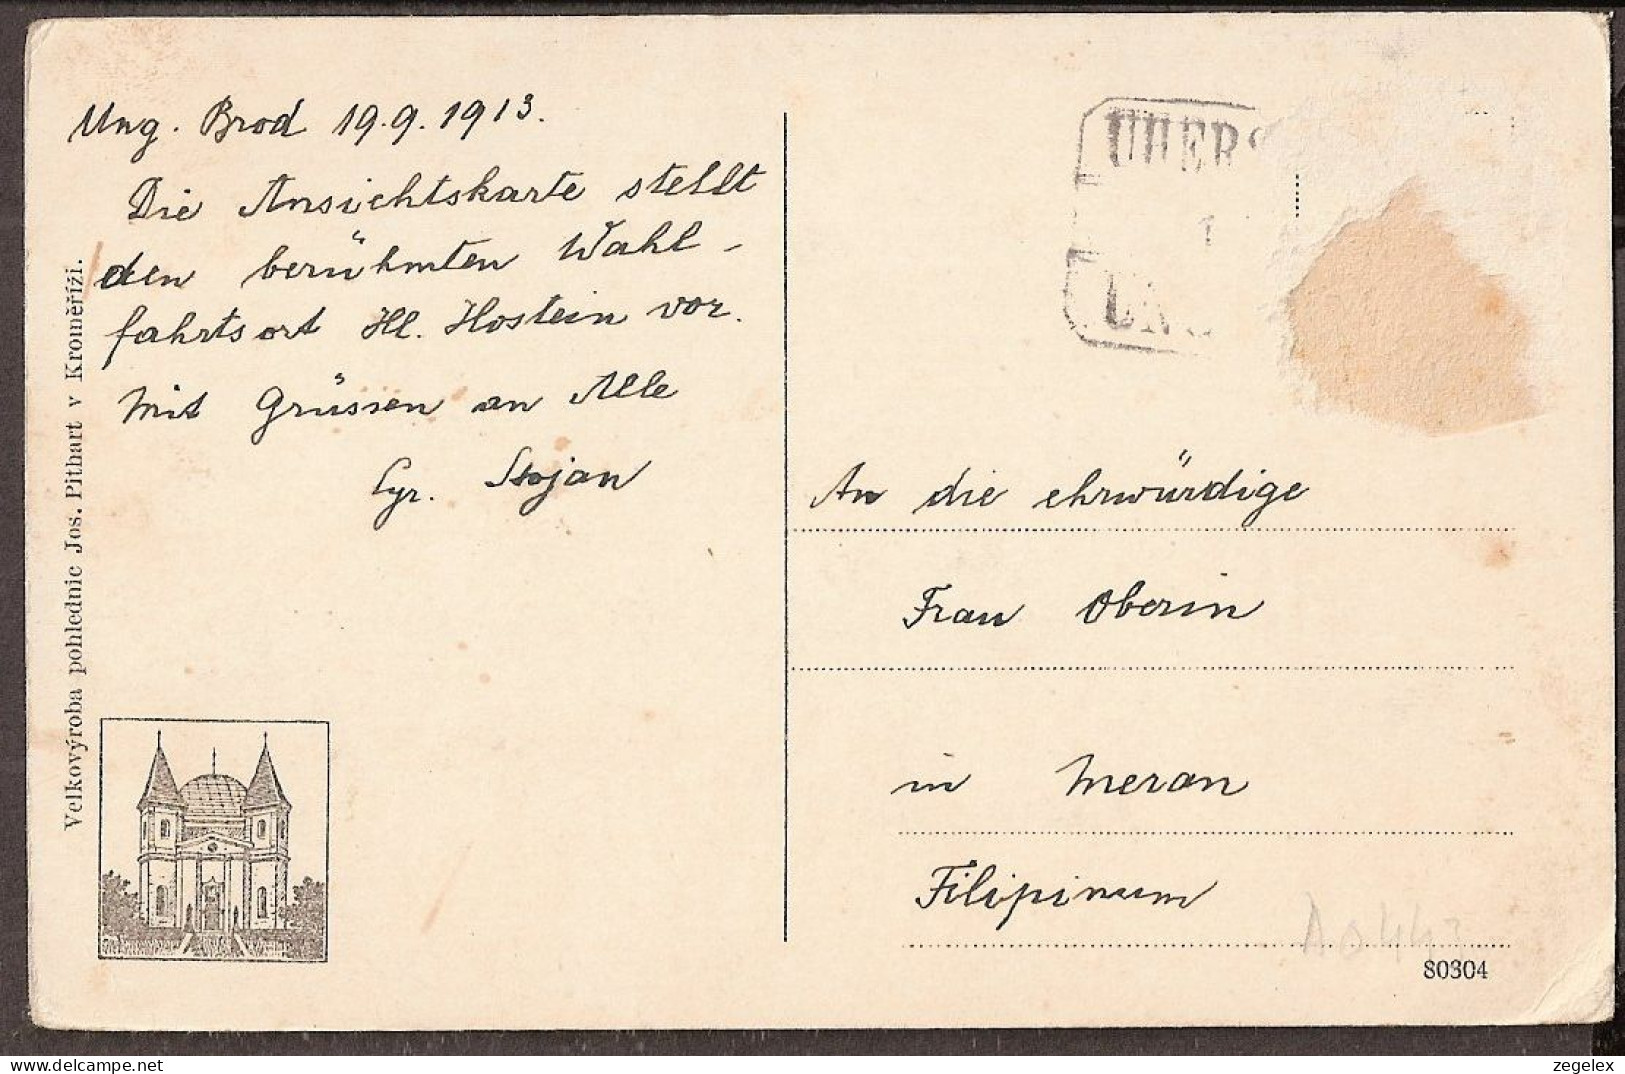 Ung. Brod 19.9.1913.
Die Ansichtskarte stellt
den berühmten Wahl-
fahrtsort Hl. Hostein vor.
Mit Grüssen an Alle
Cyr. Stojan
Velkovýroba pohlednic Jos. Pithart v Kroměříži.
UHERS
1
UNG
An die ehrwürdige
Frau Oberin
in Meran
Filipinum
A0443
80304
zegelex